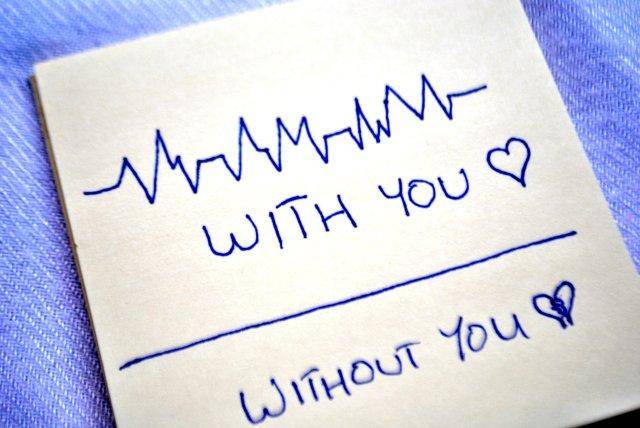 WITH YOU
WITHOUT YOU